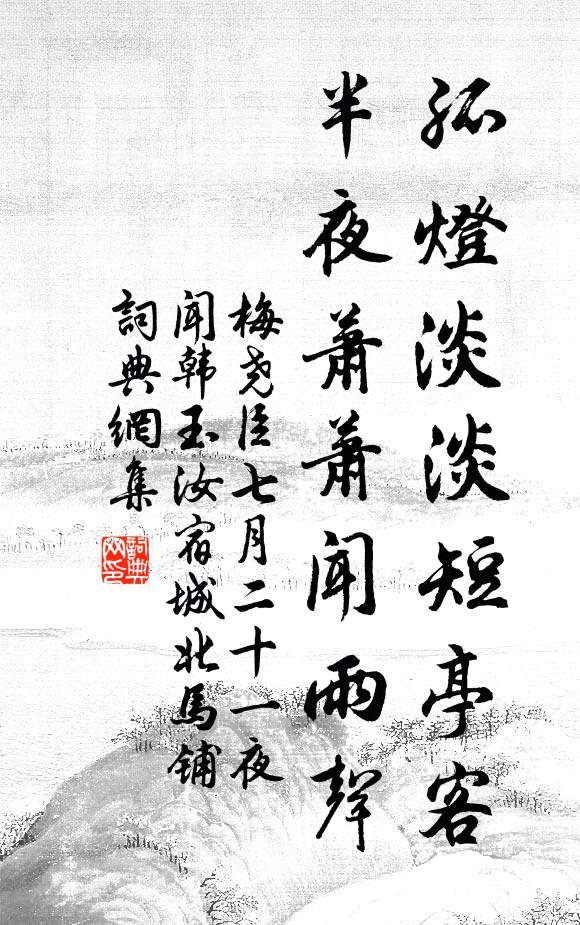 孤燈淡淡短亭客
半夜蕭蕭聞雨聲
梅堯臣七月二十一夜
聞韩玉汝宿城北馬鋪
詞典網集
詞典网印